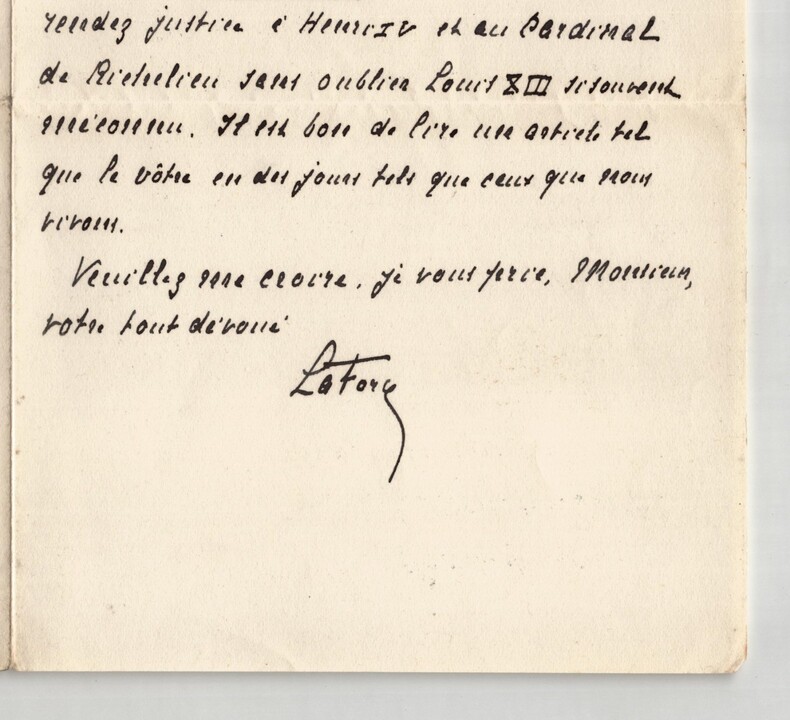 rendez justice à Henri IV et au Cardinal
de Richelieu sans oublier Louis XIII si souvent
méconnu. Il est bon de lire un article tel
que le vôtre en des jours tels que ceux que nous
vivons.
Veuillez me croire, je vous prie, Monsieur,
votre tout dévoué
La Force